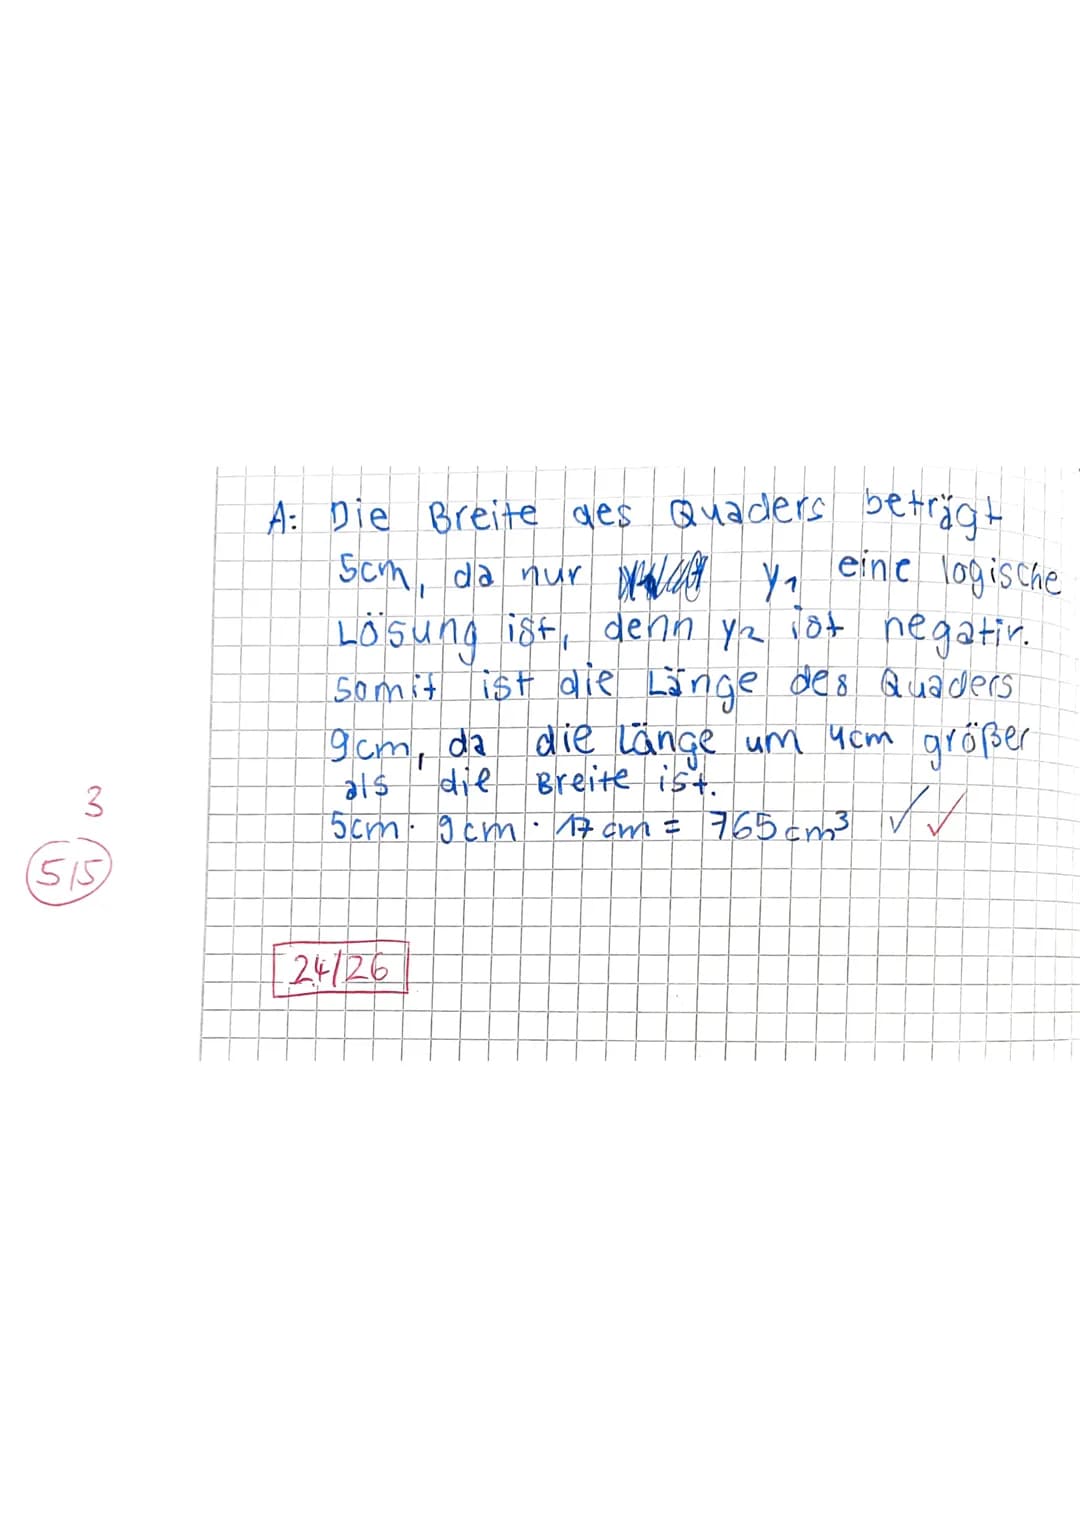 A: Die Breite des Quaders beträgt
5cm, da nur y₁ eine logische
Lösung ist, denn y₂ ist negativ.
somit ist die Länge des Quaders
9cm, da die Länge um 4cm größer
als die Breite ist.
3
5cm · 9cm · 17cm = 765cm³ ✓✓
5/5
24/26